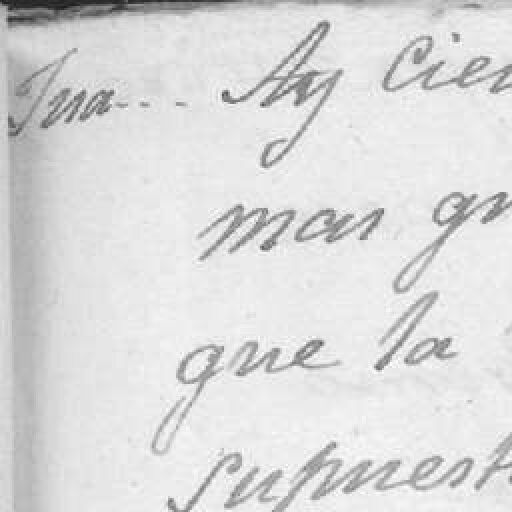 Ina... Ay Cie
mas q
que la
supuest